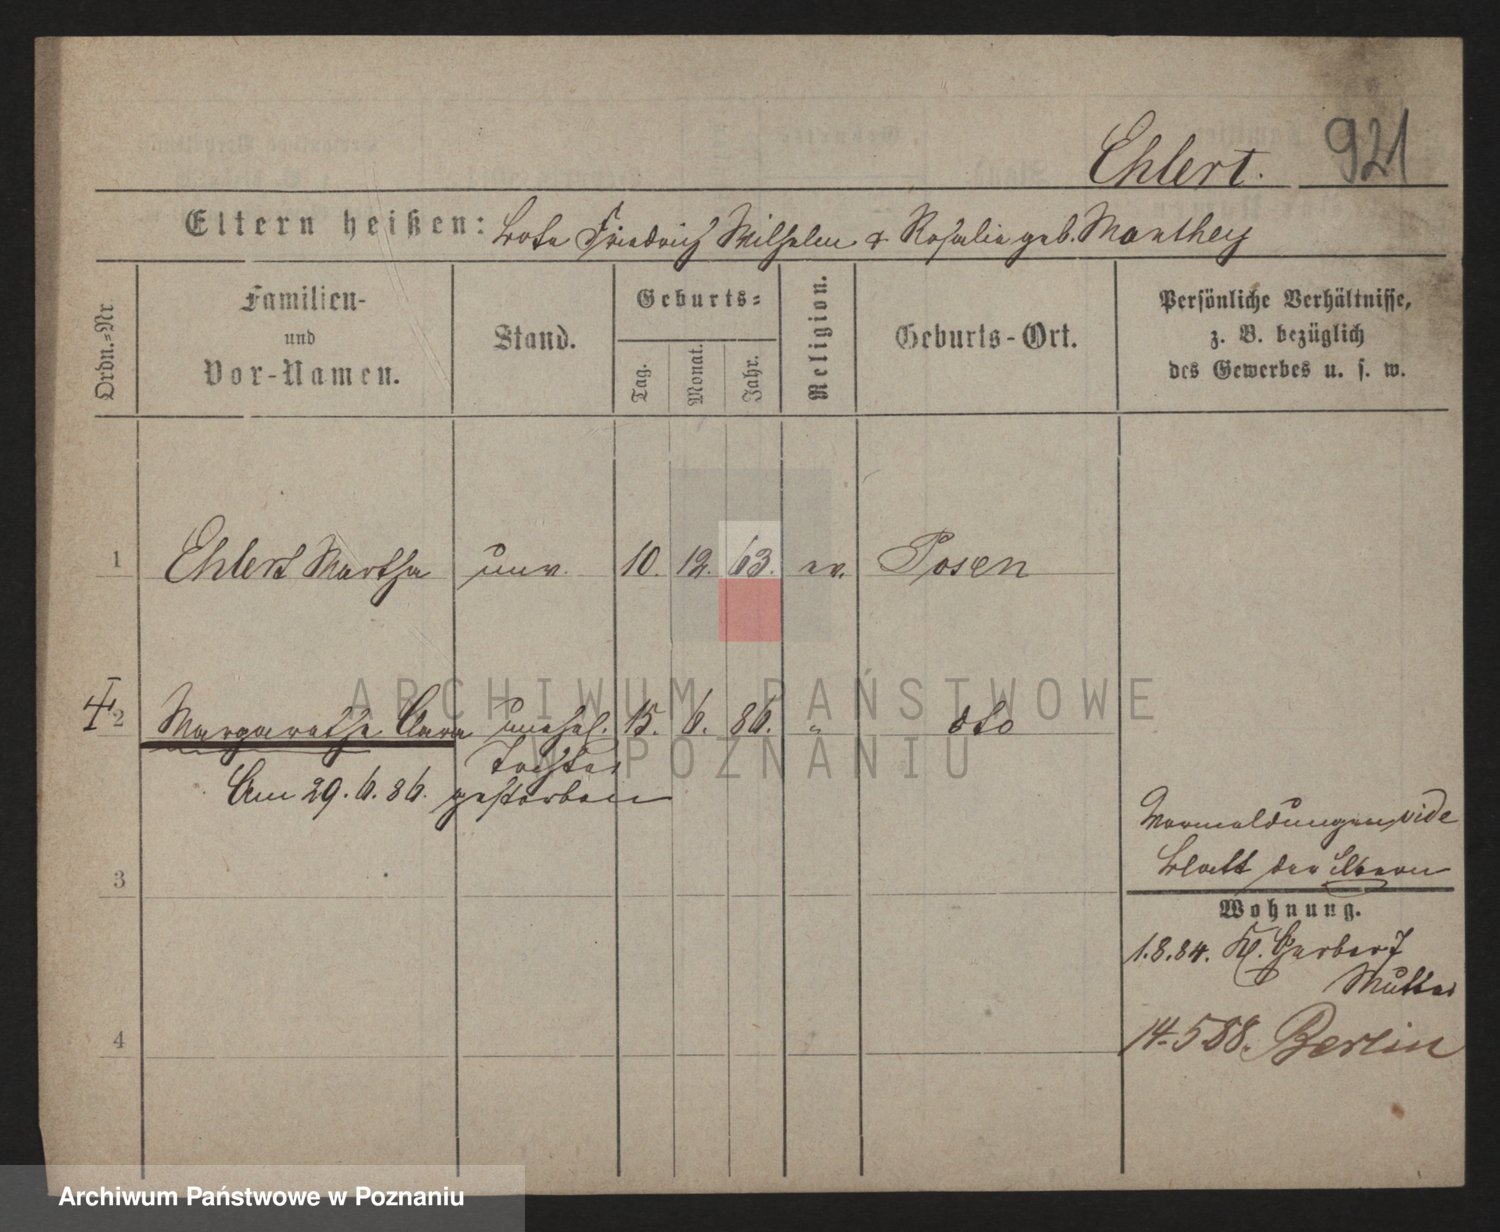 Ehlert. 921
Eltern heißen: Bote Friedrich Wilhelm & Rosalie geb. Manthey
Ordn.=Nr.
Familien-
und
Vor-Namen.
Stand.
Geburts=
Tag. Monat. Jahr.
Religion.
Geburts-Ort.
Persönliche Verhältnisse,
z. B. bezüglich
des Gewerbes u. s. w.
1 Ehlert Martha unv. 10. 12. 63. ev. Posen
2 Margarethe Clara unehel. 15. 6. 86. " dto
Tochter
Am 29. 6. 86. gestorben
3
4
Vermeldungen vide
Blatt der Eltern
Wohnung.
1.8.84. Kl. Gerber 7
Mutter
14.5 88. Berlin
ARCHIWUM PAŃSTWOWE
W POZNANIU
Archiwum Państwowe w Poznaniu